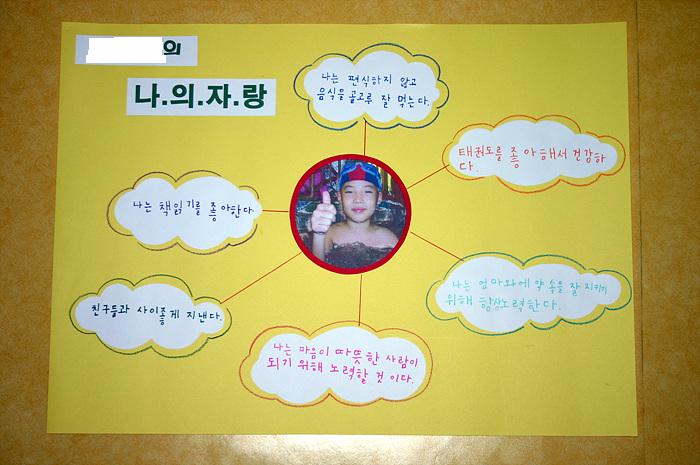 의
나.의.자.랑
나는 편식하지 않고
음식을 골고루 잘 먹는다.
태권도를 좋아해서 건강하
다.
나는 책읽기를 좋아한다.
나는 엄마와에 약속을 잘 지키기
위해 항상노력한다.
친구들과 사이좋게 지낸다.
나는 마음이 따뜻한 사람이
되기 위해 노력할 것 이다.